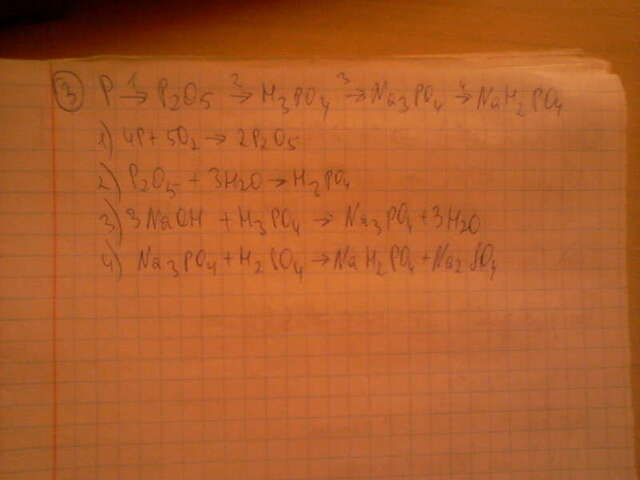 3 P 1→ P2O5 2→ H3PO4 3→ Na3PO4 4→ NaH2PO4
1) 4P + 5O2 → 2P2O5
2) P2O5 + 3H2O → H3PO4
3) 3NaOH + H3PO4 → Na3PO4 + 3H2O
4) Na3PO4 + H2SO4 → NaH2PO4 + Na2SO4